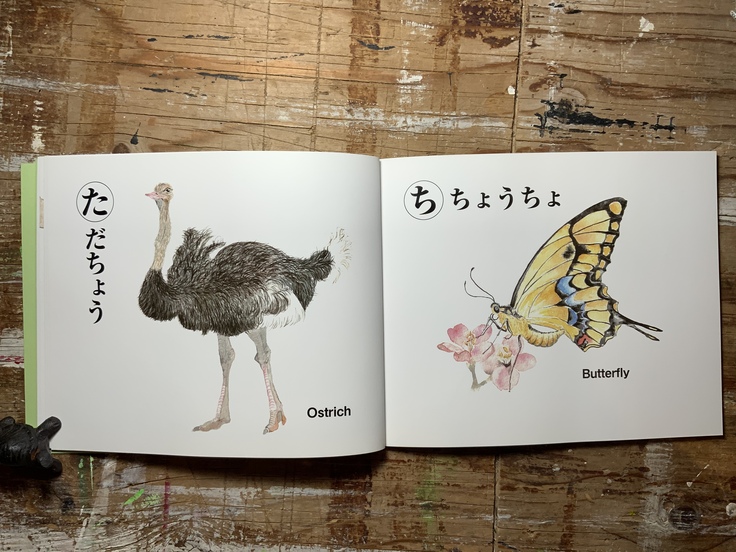 た
だちょう
Ostrich
ち ちょうちょ
Butterfly